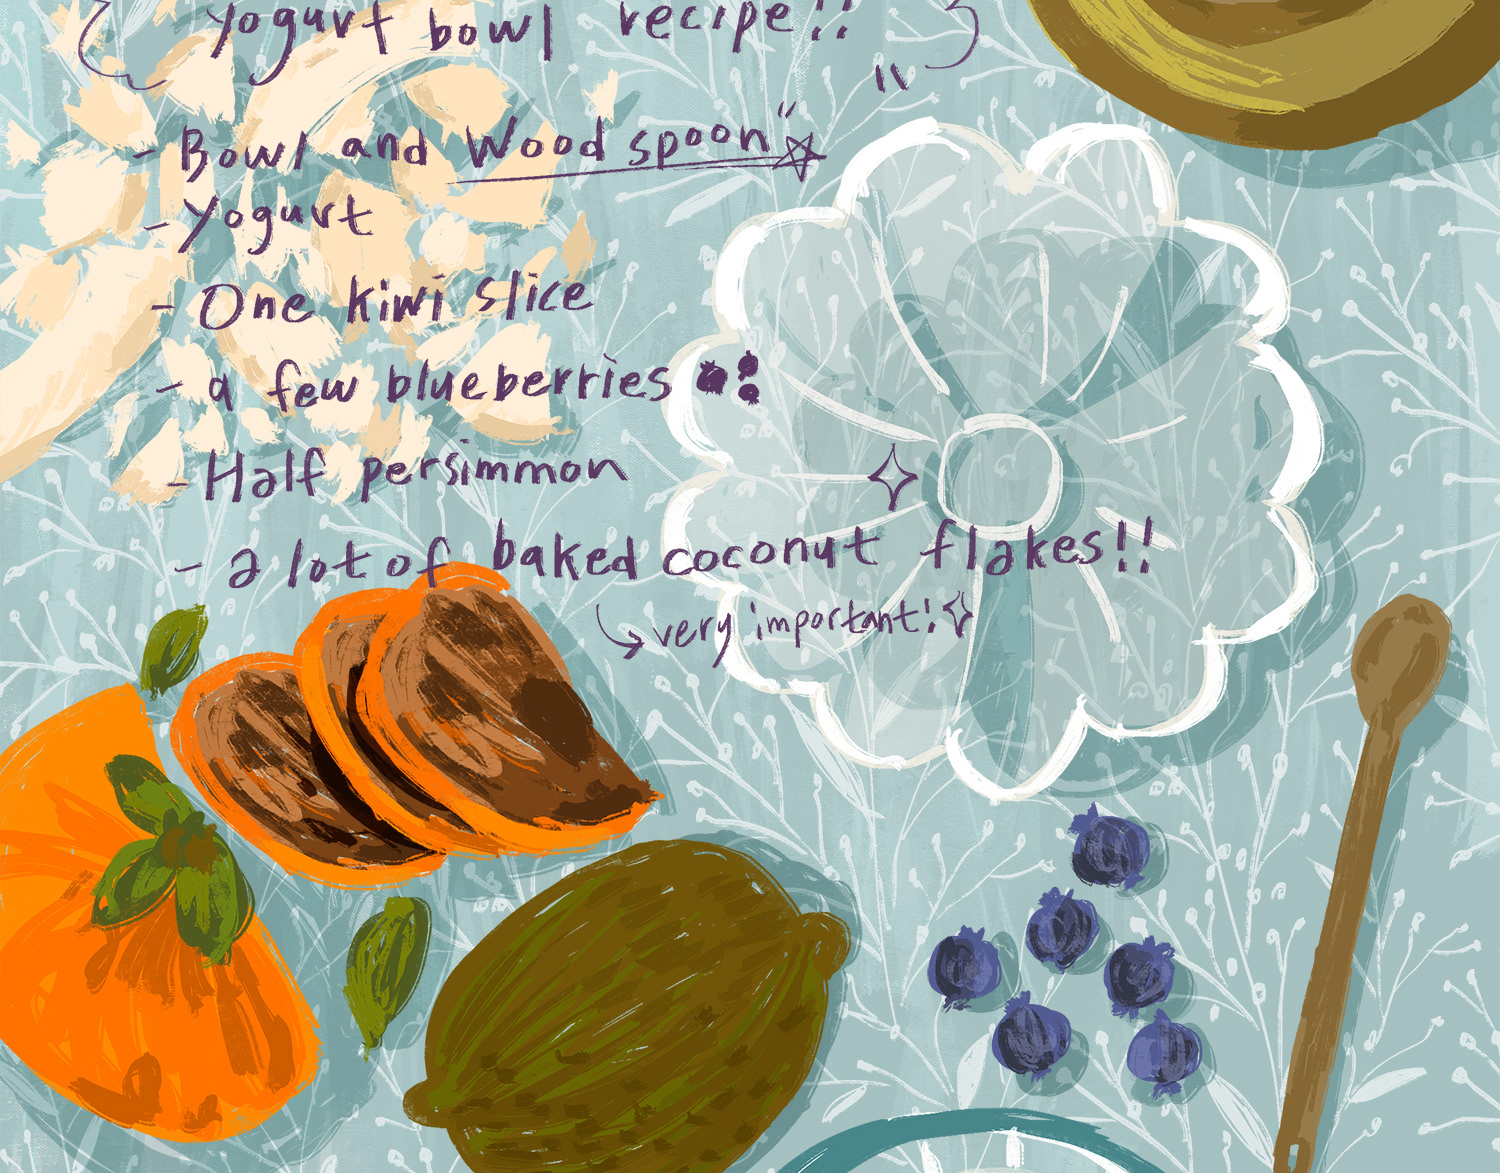 yogurt bowl recipe!!
- Bowl and "Wood spoon"
- Yogurt
- One kiwi slice
- a few blueberries
- Half persimmon
- a lot of baked coconut flakes!!
very important!